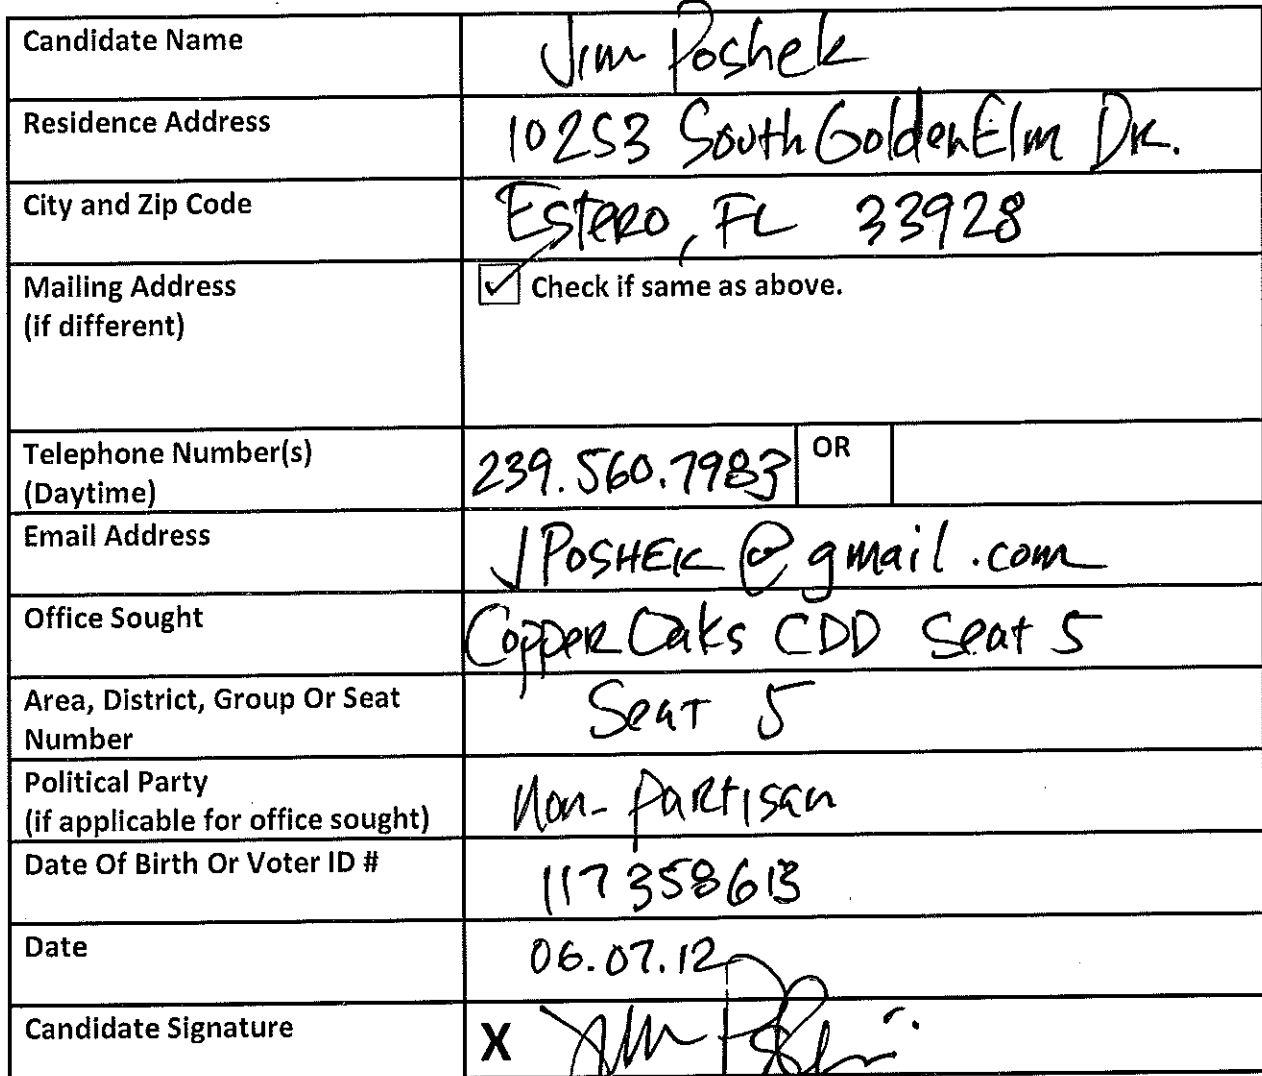 Candidate Name
Jim Poshek
Residence Address
10253 South Golden Elm DR.
City and Zip Code
Estero, FL 33928
Mailing Address
(if different)
Check if same as above.
Telephone Number(s)
(Daytime)
239.560.7983
OR
Email Address
JPOSHEK@gmail.com
Office Sought
Copper Oaks CDD Seat 5
Area, District, Group Or Seat
Number
Seat 5
Political Party
(if applicable for office sought)
Non-Partisan
Date Of Birth Or Voter ID #
117358613
Date
06.07.12
Candidate Signature
X